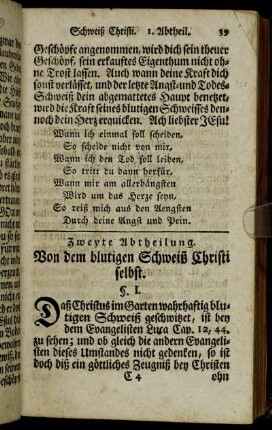 Schweiß Christi. 1. Abtheil. 39
Geschöpfe angenommen, wird dich sein theuer
Geschöpf, sein erkauftes Eigenthum nicht oh-
ne Trost lassen. Auch wann deine Kraft dich
sonst verlässet, und der letzte Angst- und Todes-
Schweiß dein abgemattetes Haupt benetzet,
wird die Kraft seines blutigen Schweisses den-
noch dein Herz erquicken. Ach liebster JEsu!
Wann ich einmal soll scheiden,
So scheide nicht von mir,
Wann ich den Tod soll leiden,
So tritt du dann herfür,
Wann mir am allerbängsten
Wird um das Herze seyn,
So reiß mich aus den Aengsten
Durch deine Angst und Pein.
Zweyte Abtheilung.
Von dem blutigen Schweiß Christi
selbst.
§. I.
Daß Christus im Garten wahrhaftig blu-
tigen Schweiß geschwitzet, ist bey
dem Evangelisten Luca Cap. 12, 44.
zu sehen; und ob gleich die andern Evangeli-
sten dieses Umstandes nicht gedenken, so ist
doch diß ein göttliches Zeugniß bey Christen
C 4 ohn